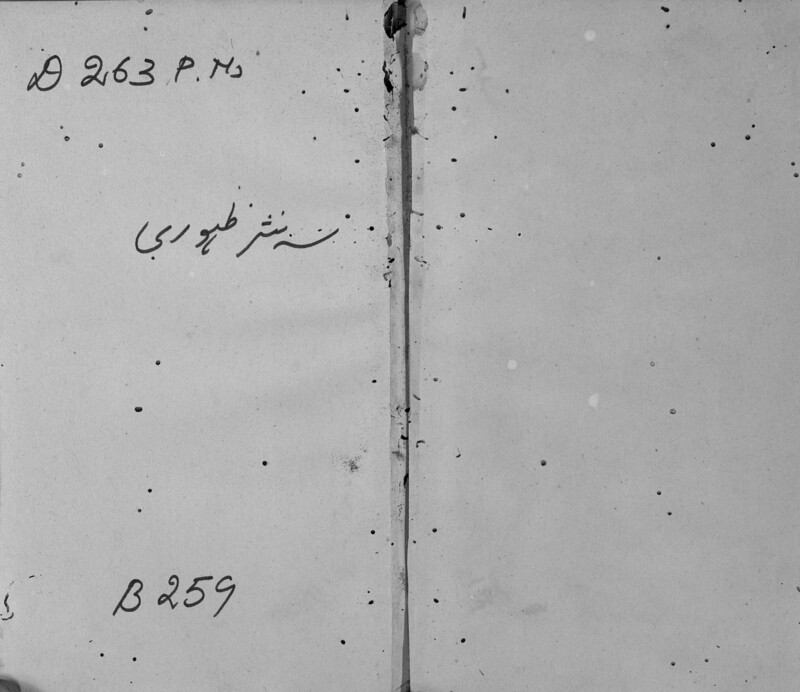 D 263 P. Ms
سہ نثر ظہوری
B 259